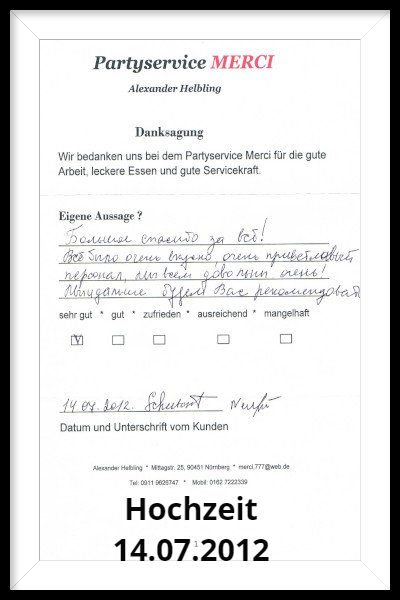 Partyservice MERCI
Alexander Helbling
Danksagung
Wir bedanken uns bei dem Partyservice Merci für die gute
Arbeit, leckere Essen und gute Servicekraft.
Eigene Aussage ?
Большое спасибо за всё!
Всё было очень вкусно, очень приветливый
персонал, мы всем довольны очень!
будем Вас рекомендовать
sehr gut * gut * zufrieden * ausreichend * mangelhaft
V
14.07.2012.
Datum und Unterschrift vom Kunden
Alexander Helbling * Mittagstr. 25, 90451 Nürnberg * merci.777@web.de
Tel: 0911 9626747 * Mobil: 0162 7222339
Hochzeit
14.07.2012